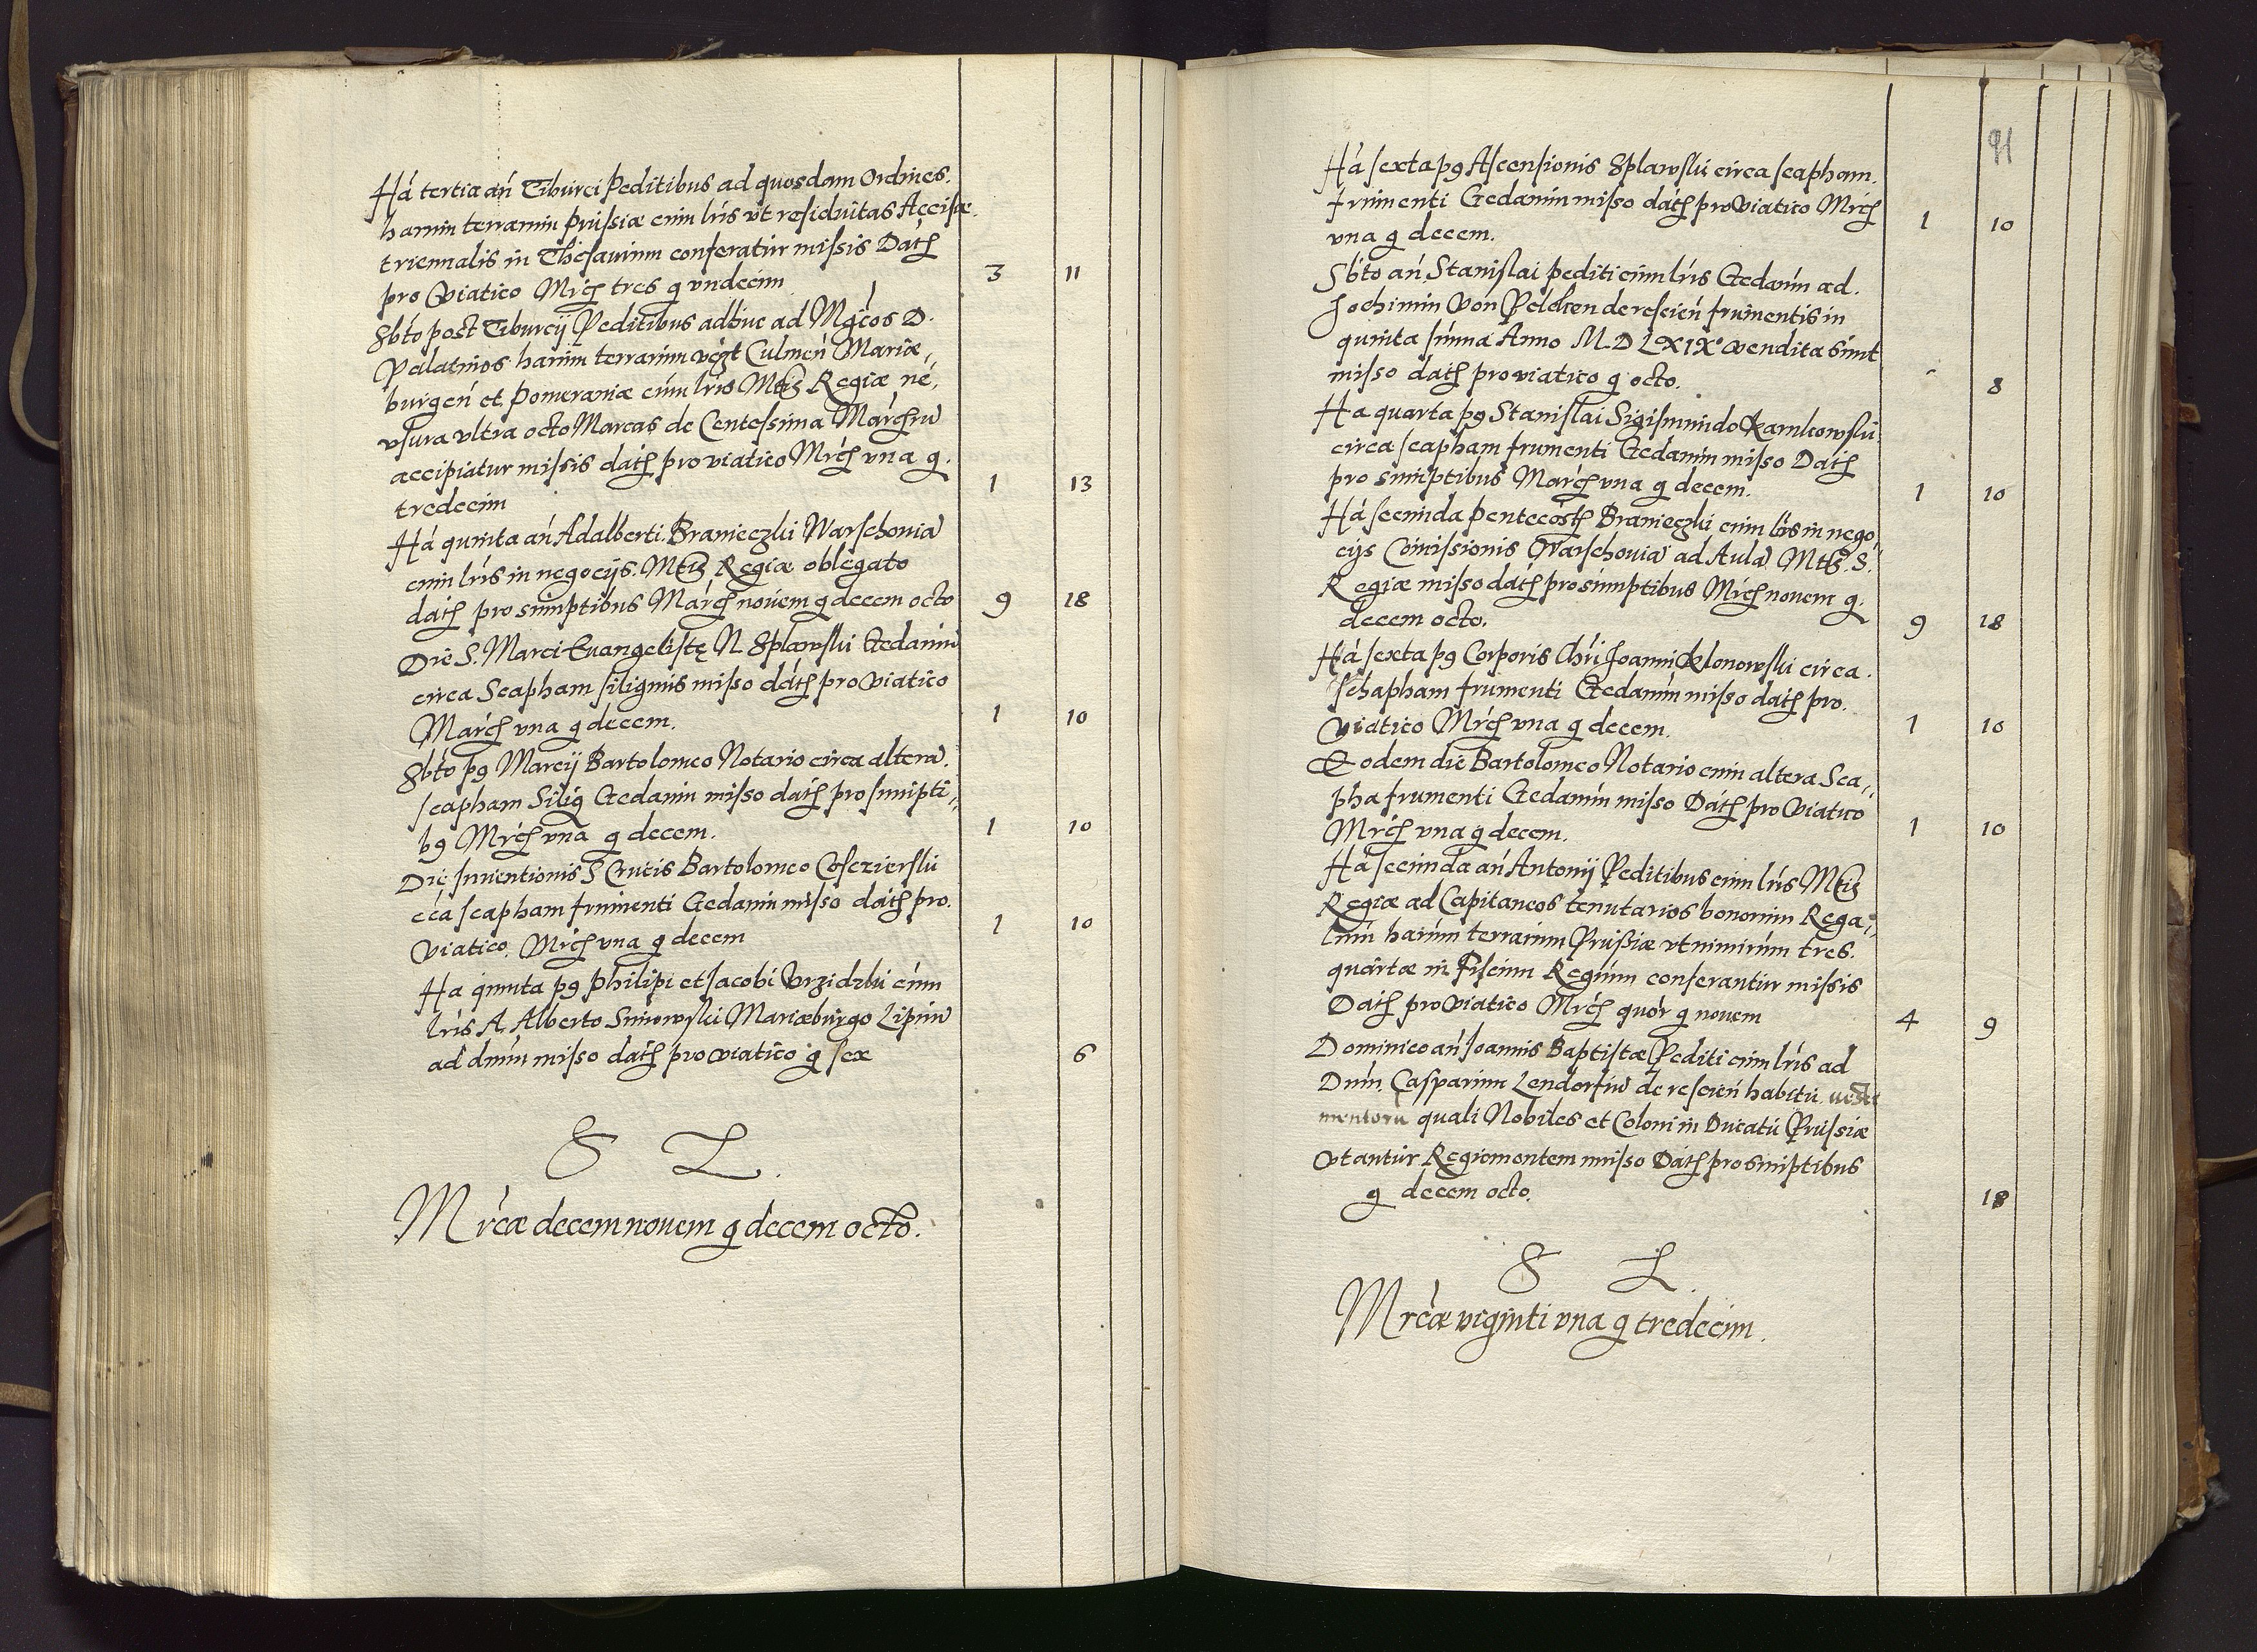 Ha tertia añ Tiburci Peditibus ad quosdam Ordines.
harum terrarum Prussiæ cum lris vt residuitas Accisæ
triennalis in Thesaurum conferatur missis Dath
pro Viatico Mrch tres g vndecim 3 11
Sbto post Tiburcij Peditibus adhuc ad Mgcos D.
Palatinos harum terrarum vczt Culmeñ Mariæ,
burgeñ et Pomeraniæ cum lris Mtis Regiæ né,
vsura vltra octo Marcas de Centessima March
accipiatur missis dath pro viatico Mrch vna g.
tredecim 1 13
Ha quinta añ Adalberti Branieczki Warschouia
cum lris in negocijs Mtis Regiæ oblegato
dath pro sumptibus March nouem g decem octo 9 18
Die S. Marci Euangelistę N. Splawski Gedanum
circa Scapham siliginis misso dath pro Viatico
March vna g decem. 1 10
Sbto pg Marcij Bartolomeo Notario circa altera.
scapham Silig Gedanum misso dath pro sumpti,,
bg Mrch vna g decem. 1 10
Die Inuentionis S Crucis Bartolomeo Osezierski
cca scapham frumenti Gedanum misso dath pro.
Viatico. Mrch vna g decem 1 10
Ha quinta pg Philipi et Jacobi Vrzidzki cum
lris A. Alberto Sinowski Mariæburgo
ad dnum misso dath pro viatico g sex 6
S L.
Mrcæ decem nouem g decem octo.
91
Ha sexta pg Ascensionis Splawski circa scapham.
frumenti Gedanum misso dath pro Viatico Mrch
vna g decem. 1 10
Sbto añ Stanislai pediti cum lris Gedanum ad.
Jochimum Von Pelcken de rescień frumentis in
quinta summa Anno M.D LXIX° vendita sunt
misso dath pro viatico g octo. - 8
Ha quarta pg Stanislai Sigismundo Karnkowski
circa scapham frumenti Gedanum misso Dath
pro sumptibus March vna g decem. 1 10
Ha secunda Pentecosth Branieczki cum lris in nego,,
cijs Comissionis Warschouia ad Aula Mtis. S.
Regiæ misso dath pro sumptibus Mrch nouem g.
decem octo. 9 18
Ha sexta pg Corporis Chri Joanni Klonowski circa.
schapham frumenti Gedanum misso dath pro.
Viatico Mrch vna g decem. 1 10
Eodem die Bartolomeo Notario cum altera Sca,,
pha frumenti Gedanum misso Dath pro Viatico
Mrch vna g decem. 1 10
Ha secunda añ Antonij Peditibus cum lris Mtis
Regiæ ad Capitaneos tenutarios bonorum Rega,,
lium harum terrarum Prussiæ vt nimirum tres.
quartæ in Fiscum Regium conferantur missis
Dath pro Viatico Mrch quor g nouem 4 9
Dominico añ Joannis Baptistæ Pediti cum lris ad
Dnm. Casparum Lendorfium de rescień habitu vesti
mentorū quali Nobiles et Coloni in Ducatu Prussiæ
vtantur Regiomontem misso Dath pro sumptibus
g decem octo. 18
S L.
Mrcæ viginti vna g tredecim.